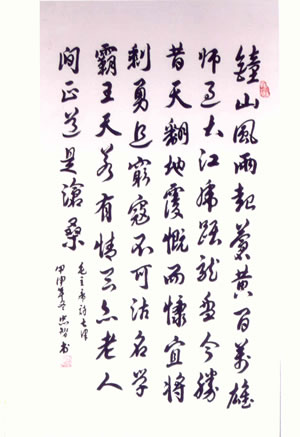 鐘山風雨起蒼黃百萬雄
师过大江虎踞龍盘今勝
昔天翻地覆慨而慷宜将
剩勇追窮寇不可沽名学
霸王天若有情天亦老人
间正道是滄桑
毛主席詩七律
甲申年冬 书